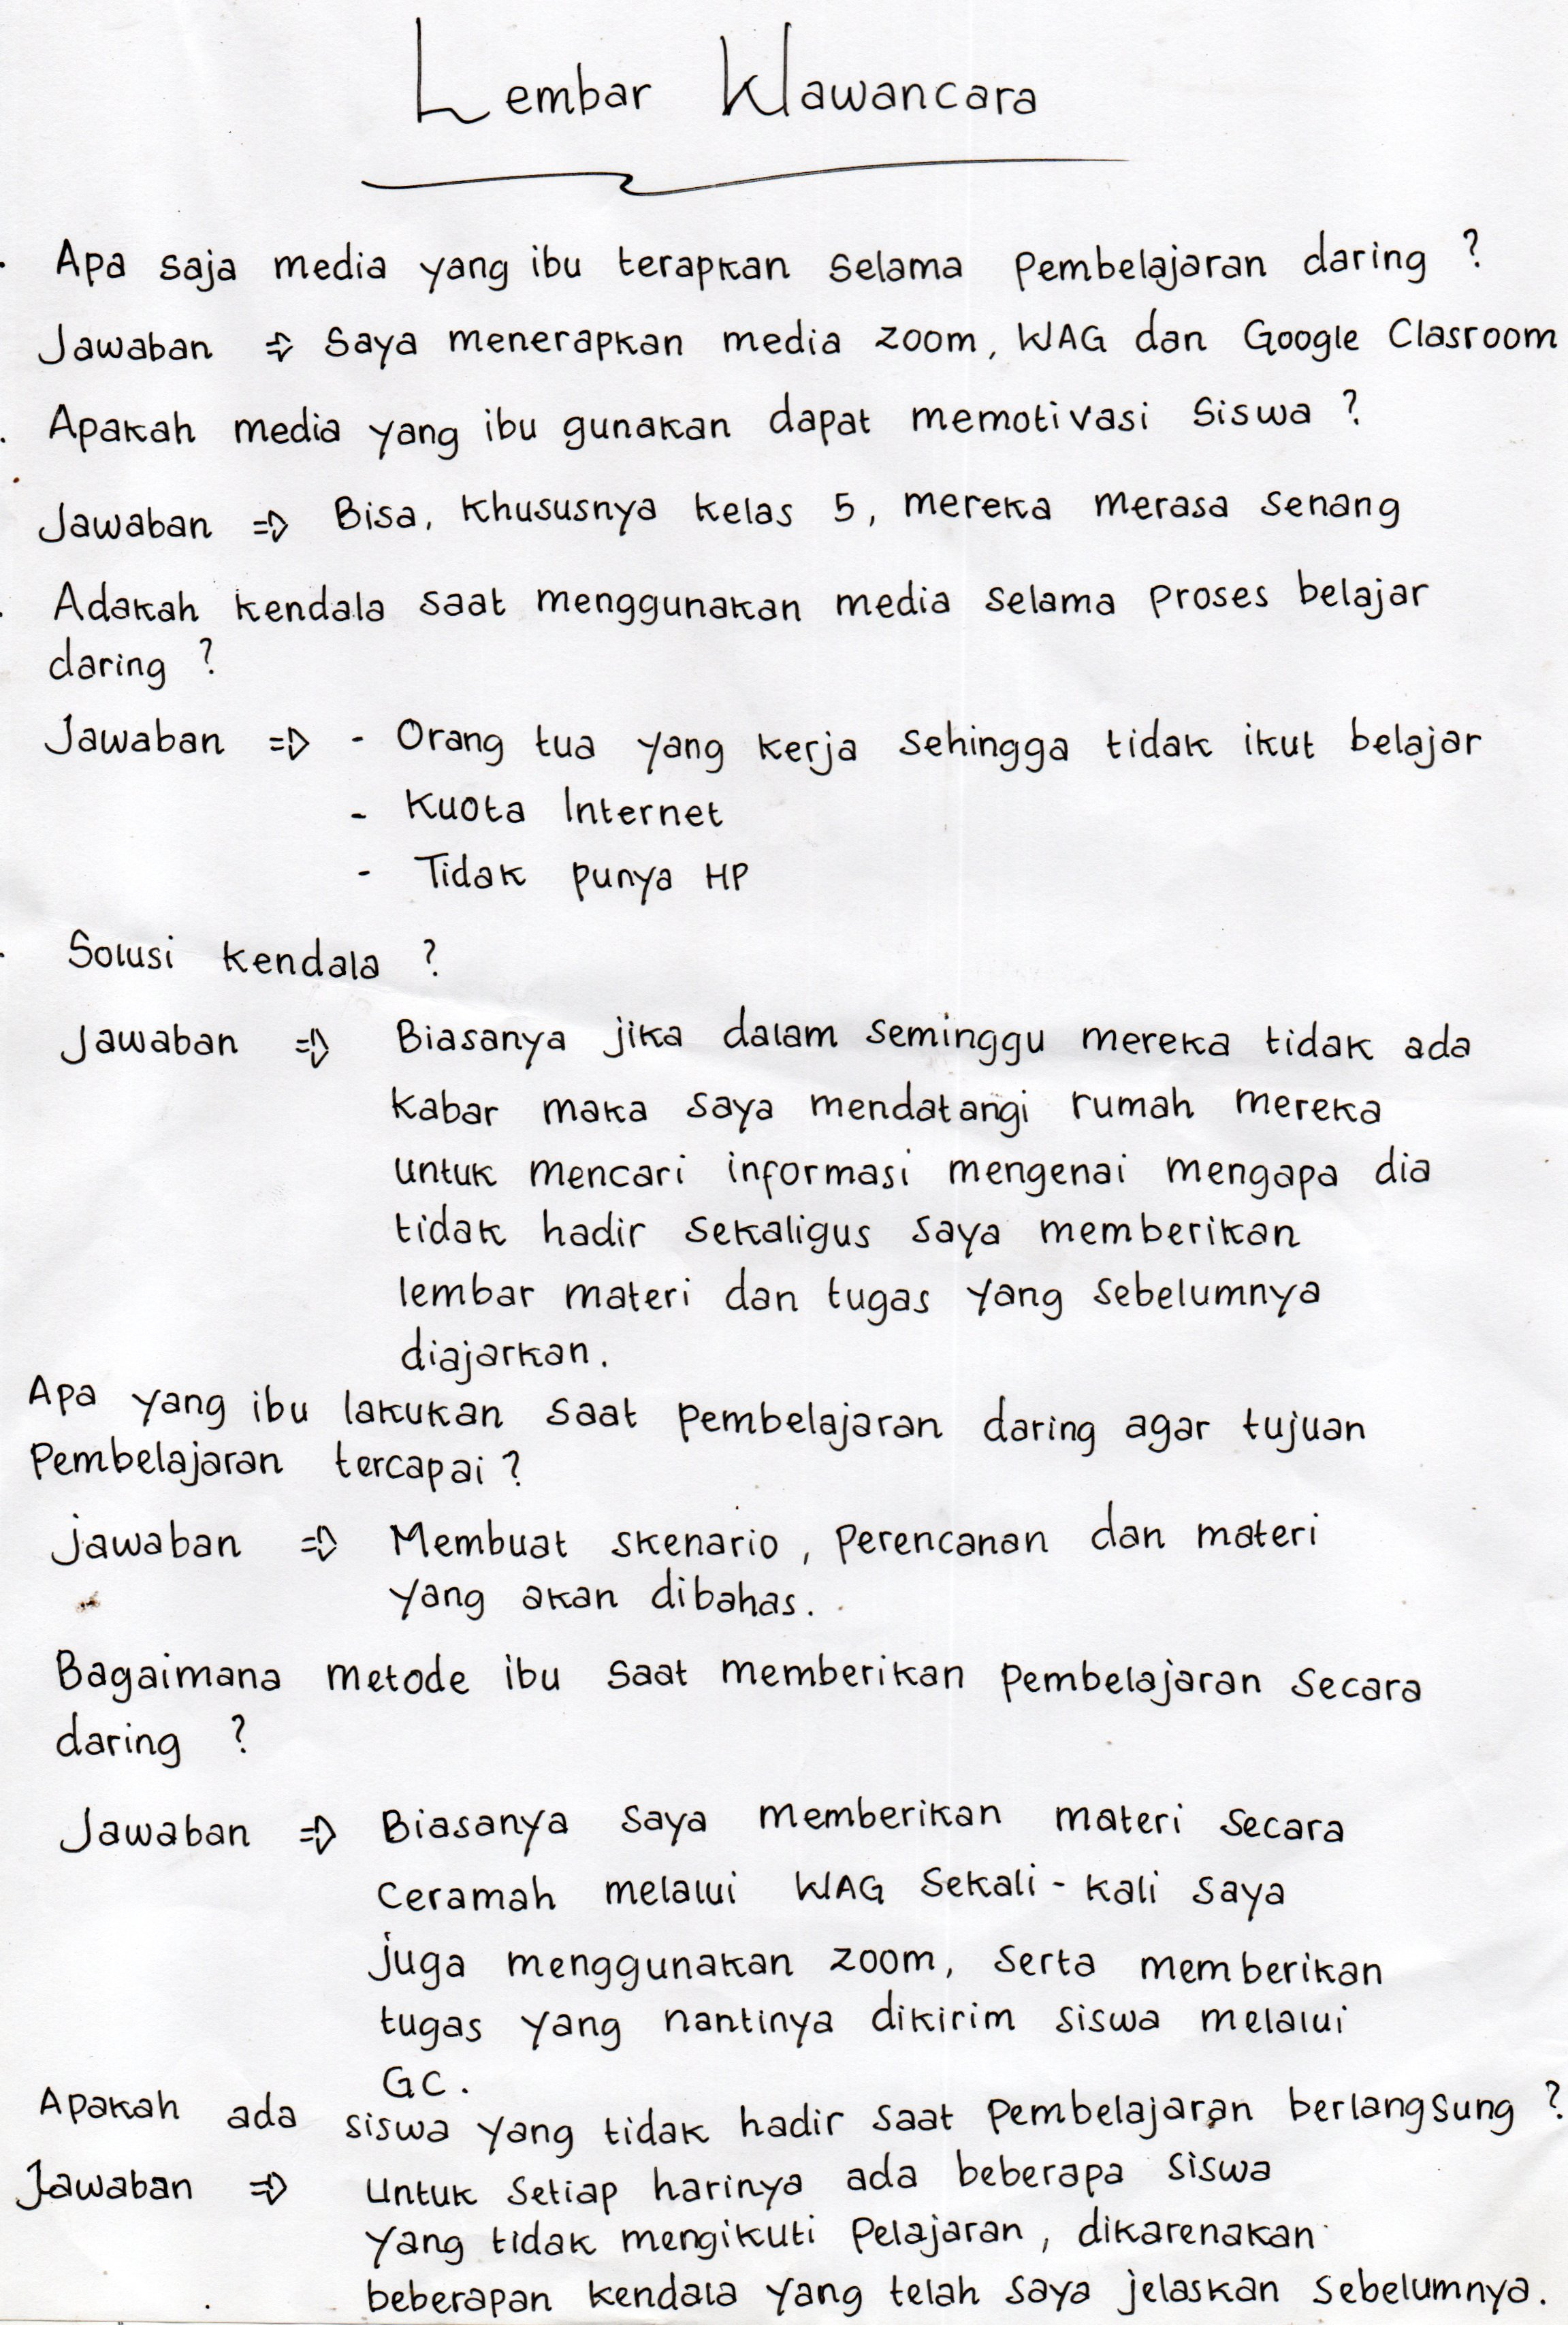 Lembar Wawancara
. Apa saja media yang ibu terapkan selama pembelajaran daring ?
Jawaban => Saya menerapkan media zoom, WAG dan Google Clasroom
. Apakah media yang ibu gunakan dapat memotivasi siswa ?
Jawaban => Bisa, khususnya kelas 5, mereka merasa senang
. Adakah kendala saat menggunakan media selama proses belajar
daring ?
Jawaban => - Orang tua yang kerja sehingga tidak ikut belajar
- Kuota Internet
- Tidak punya HP
. Solusi kendala ?
Jawaban => Biasanya jika dalam seminggu mereka tidak ada
kabar maka saya mendatangi rumah mereka
untuk mencari informasi mengenai mengapa dia
tidak hadir sekaligus saya memberikan
lembar materi dan tugas yang sebelumnya
diajarkan.
Apa yang ibu lakukan saat pembelajaran daring agar tujuan
Pembelajaran tercapai ?
jawaban => Membuat skenario, perencanan dan materi
yang akan dibahas.
Bagaimana metode ibu saat memberikan pembelajaran secara
daring ?
Jawaban => Biasanya saya memberikan materi secara
ceramah melalui WAG sekali - kali saya
juga menggunakan zoom, serta memberikan
tugas yang nantinya dikirim siswa melalui
GC.
Apakah ada siswa yang tidak hadir saat pembelajaran berlangsung ?
Jawaban => Untuk setiap harinya ada beberapa siswa
yang tidak mengikuti pelajaran, dikarenakan
beberapan kendala yang telah saya jelaskan sebelumnya.